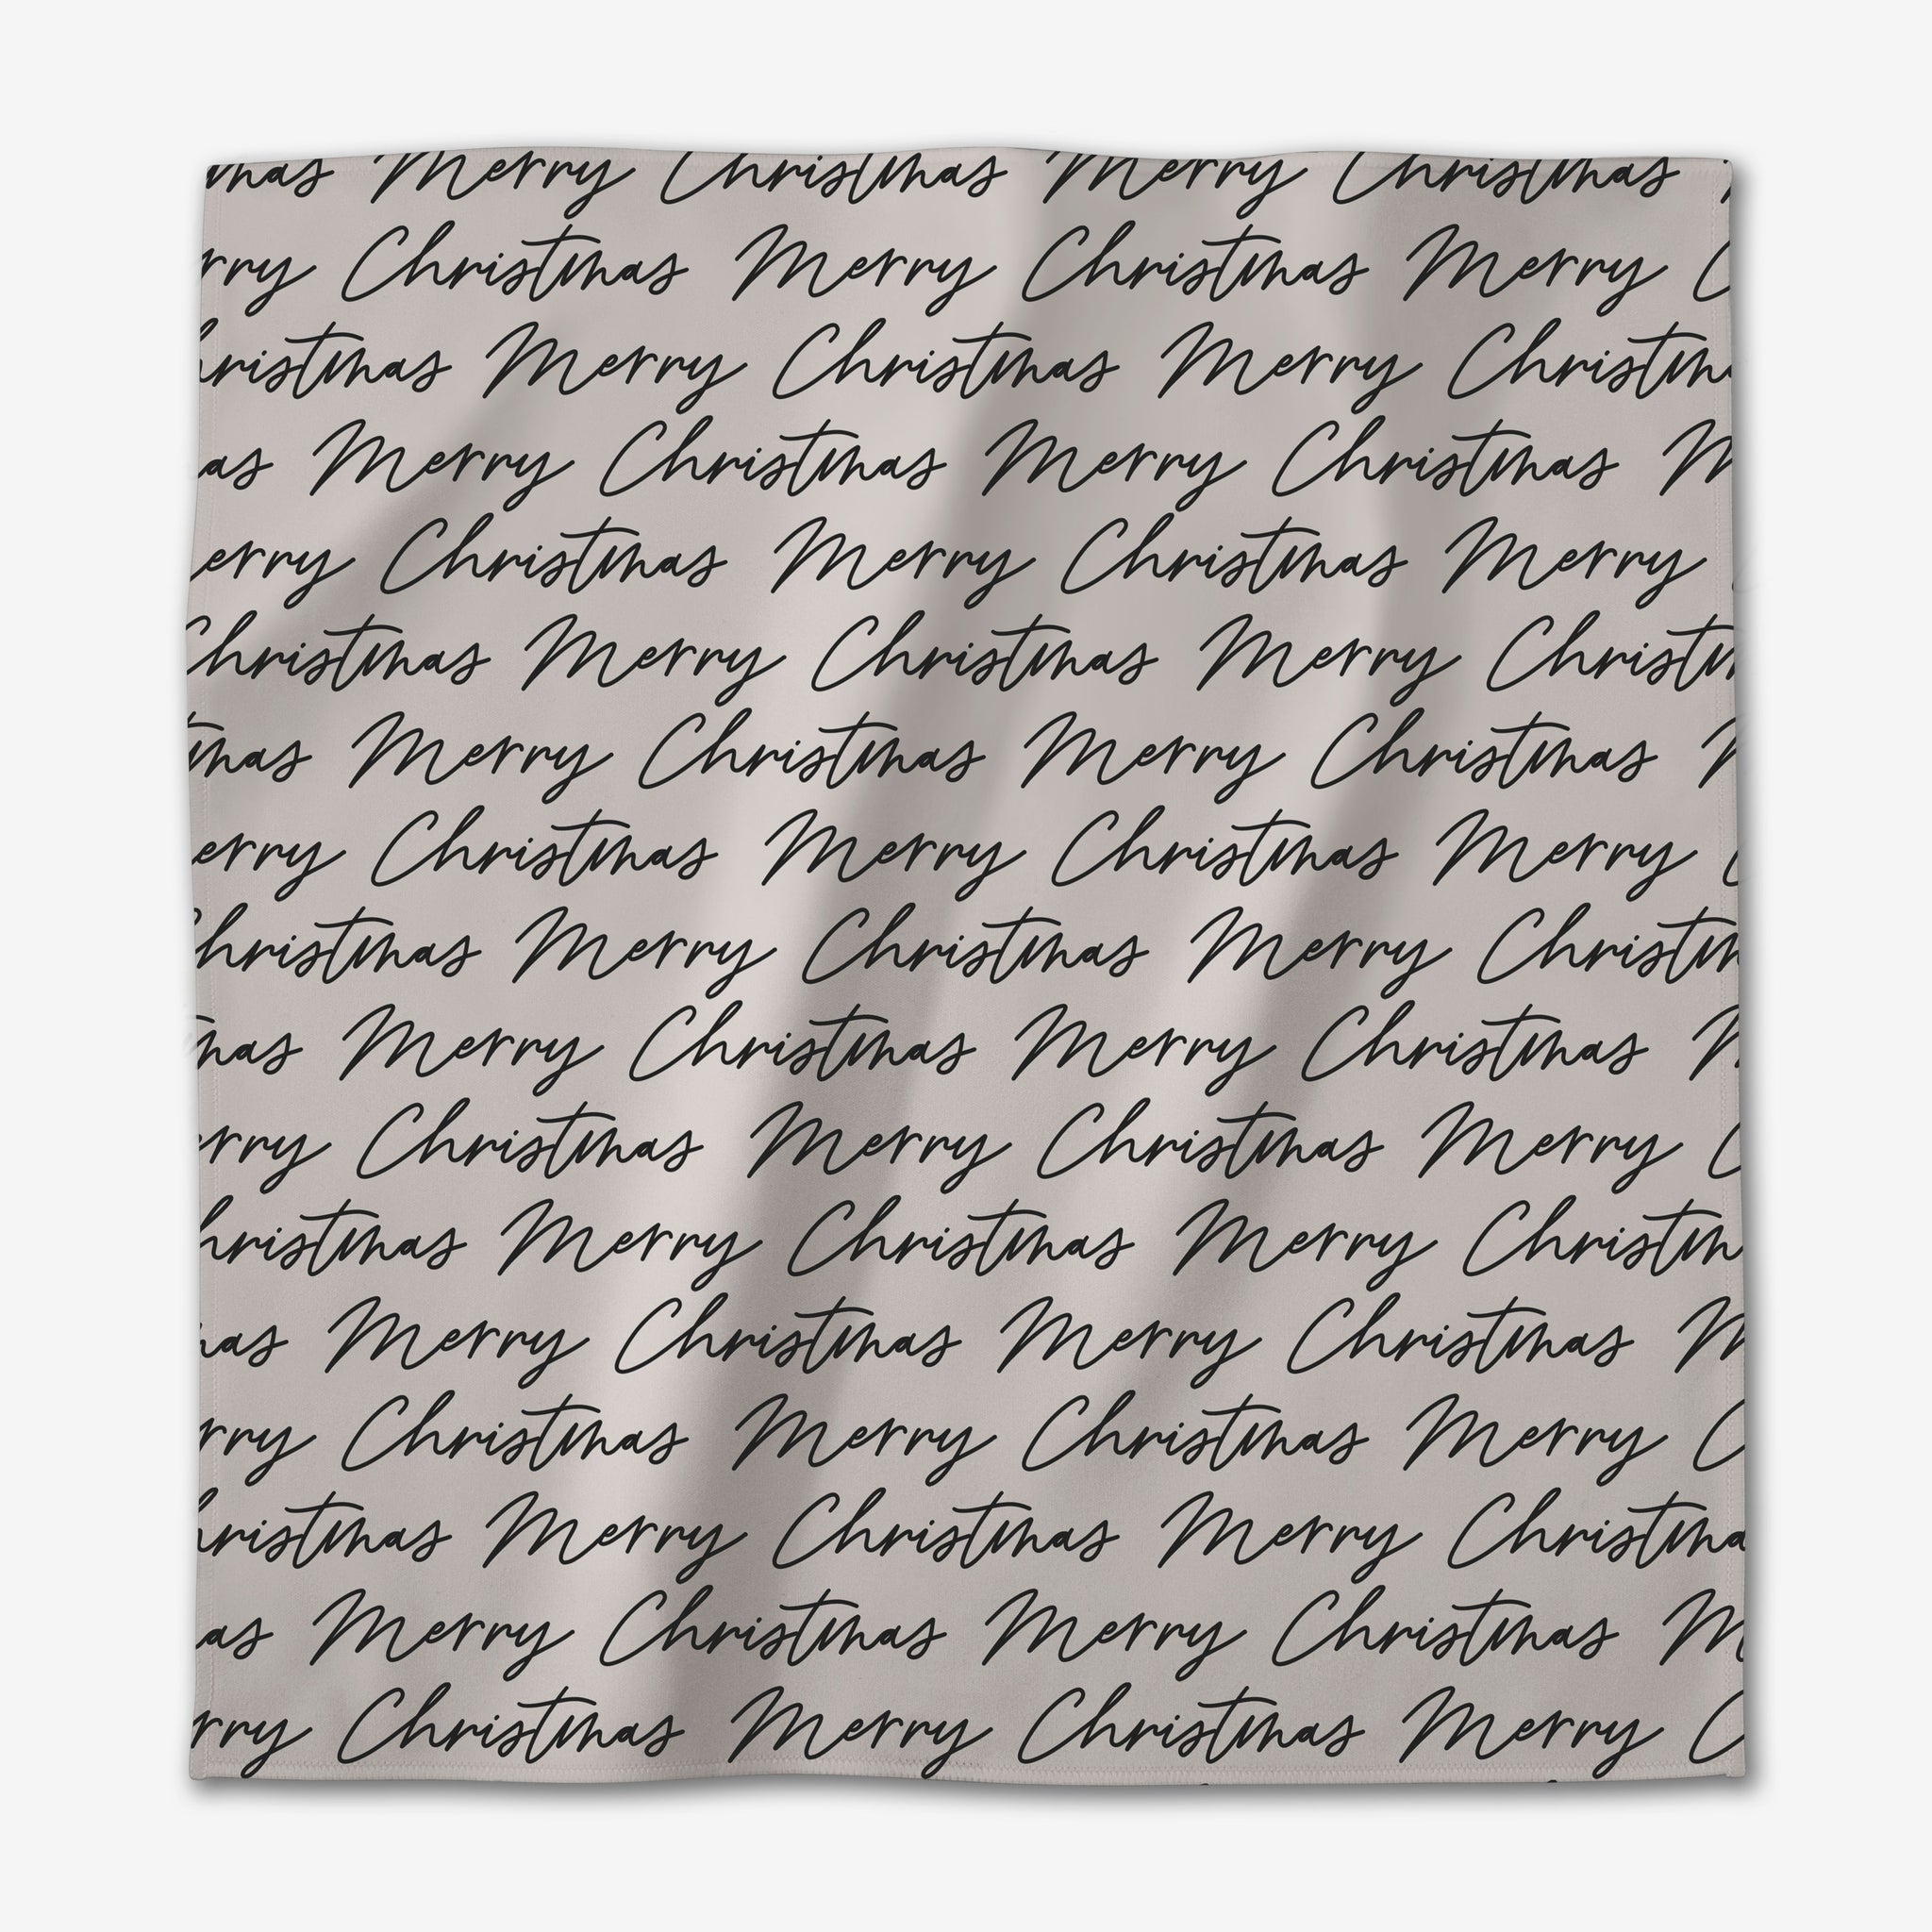 mas Merry Christmas Merry Christmas
rry Christmas Merry Christmas Merry C
hristmas Merry Christmas Merry Christm
as Merry Christmas Merry Christmas M
erry Christmas Merry Christmas Merry
Christmas Merry Christmas Merry Christm
tmas Merry Christmas Merry Christmas M
erry Christmas Merry Christmas Merry C
hristmas Merry Christmas Merry Christm
mas Merry Christmas Merry Christmas M
erry Christmas Merry Christmas Merry C
hristmas Merry Christmas Merry Christm
as Merry Christmas Merry Christmas M
rry Christmas Merry Christmas Merry C
hristmas Merry Christmas Merry Christma
as Merry Christmas Merry Christmas M
rry Christmas Merry Christmas Merry C